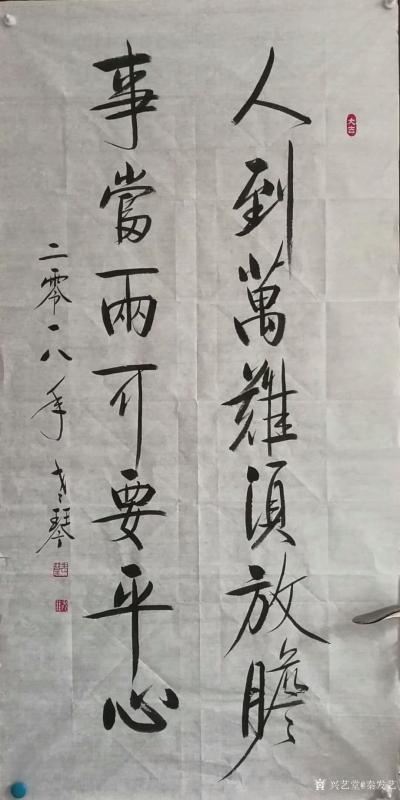 大吉
人到萬難須放膽
事當兩可要平心
二零一八年
琴
兴艺堂@秦发艺